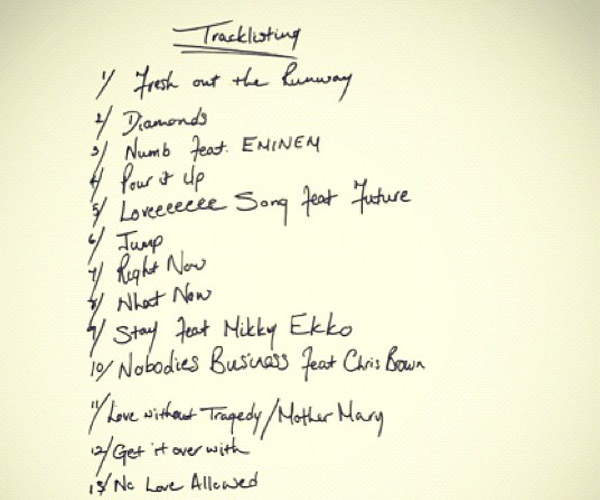 Tracklisting
1/ Fresh out the Runway
2/ Diamonds
3/ Numb feat. EMINEM
4/ Pour it Up
5/ Loveeeeeee Song feat Future
6/ Jump
7/ Right Now
8/ What Now
9/ Stay feat Mikky Ekko
10/ Nobodies Business feat Chris Brown
11/ Love without Tragedy/Mother Mary
12/ Get it over with
13/ No Love Allowed